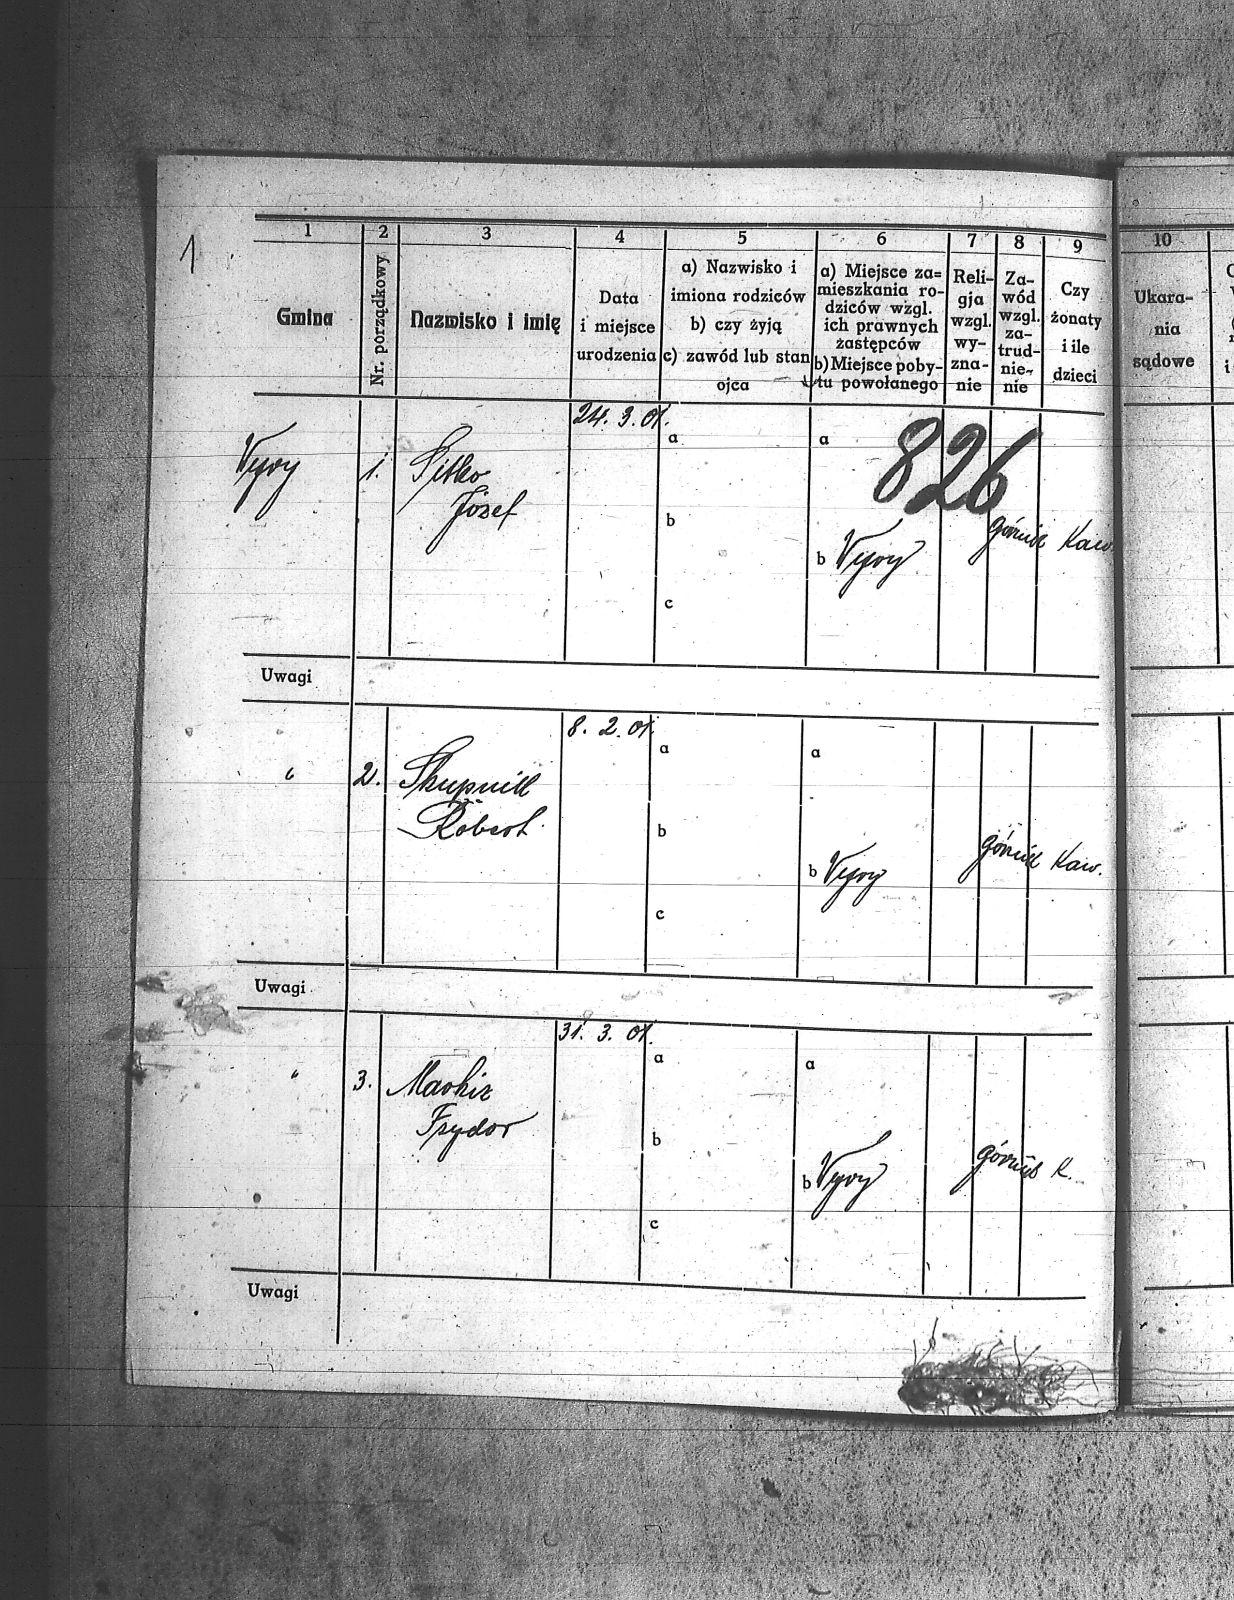 1
1
2
3
4
5
6
7
8
9
10
Gmina
Nr. porządkowy
Nazwisko i imię
Data
i miejsce
urodzenia
a) Nazwisko i
imiona rodziców
b) czy żyją
c) zawód lub stan
ojca
a) Miejsce za=
mieszkania ro-
dziców wzgl.
ich prawnych
zastępców
b) Miejsce poby-
tu powołanego
Reli-
gja
wzgl.
wy-
zna-
nie
Za-
wód
wzgl.
za-
trud-
nie-
nie
Czy
żonaty
i ile
dzieci
Ukara-
nia
sądowe
24. 3. 01.
a
a
826
Wyry
1.
Sitko
Józef
b
b Wyry
górnik
Kaw.
c
Uwagi
8. 2. 01.
a
a
"
2.
Robert
b
b Wyry
górnik
Kaw.
c
Uwagi
31. 3. 01.
a
a
"
3.
b
b Wyry
górnik
K.
c
Uwagi